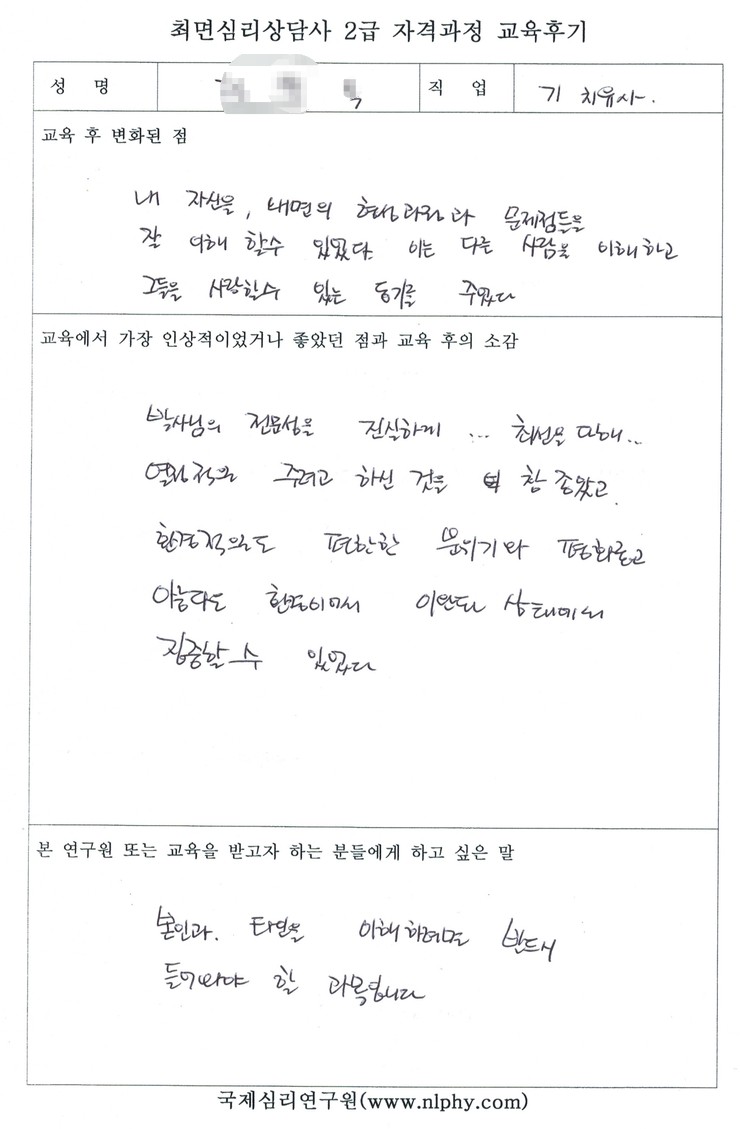 최면심리상담사 2급 자격과정 교육후기
성 명
직 업 기 치유사.
교육 후 변화된 점
내 자신을, 내면의 현상과 과 문제점들을
잘 이해 할수 있었다. 이는 다른 사람을 이해하고
그들을 사랑할수 있는 동기를 주었다
교육에서 가장 인상적이었거나 좋았던 점과 교육 후의 소감
박사님의 전문성을 진실하게 ... 최선을 다해...
열정적으로 주려고 하신 것을 참 좋았고.
환경적으로도 편안한 분위기와 평화롭고
아름다운 환경이며서 이완된 상태에서
집중할 수 있었다
본 연구원 또는 교육을 받고자 하는 분들에게 하고 싶은 말
본인과. 타인을 이해하려면 반드시
들어봐야 할 과목입니다
국제심리연구원(www.nlphy.com)